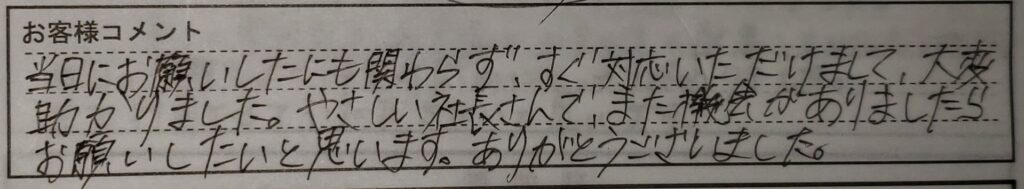 お客様コメント
当日にお願いしたにも関わらず、すぐ対応いただけまして、大変
助かりました。やさしい社長さんで、また機会がありましたら
お願いしたいと思います。ありがとうございました。